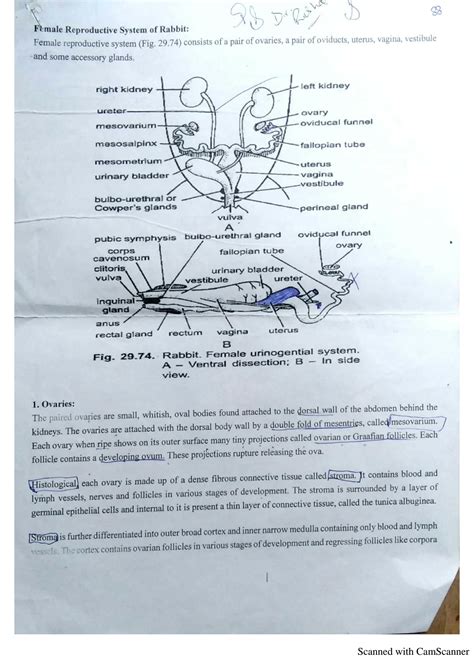 88
Female Reproductive System of Rabbit:
Female reproductive system (Fig. 29.74) consists of a pair of ovaries, a pair of oviducts, uterus, vagina, vestibule
and some accessory glands.
right kidney
left kidney
ureter
ovary
mesovarium
oviducal funnel
mesosalpinx
fallopian tube
mesometrium
uterus
urinary bladder
vagina
vestibule
bulbo-urethral or
Cowper's glands
perineal gland
vulva
A
pubic symphysis
bulbo-urethral gland
oviducal funnel
corps
cavenosum
fallopian tube
ovary
clitoris
urinary bladder
vulva
vestibule
ureter
inguinal
gland
anus
rectal gland
rectum
vagina
uterus
B
Fig. 29.74. Rabbit. Female urinogential system.
A – Ventral dissection; B – In side
view.
1. Ovaries:
The paired ovaries are small, whitish, oval bodies found attached to the dorsal wall of the abdomen behind the
kidneys. The ovaries are attached with the dorsal body wall by a double fold of mesentries, called mesovarium.
Each ovary when ripe shows on its outer surface many tiny projections called ovarian or Graafian follicles. Each
follicle contains a developing ovum. These projections rupture releasing the ova.
Histological, each ovary is made up of a dense fibrous connective tissue called stroma. It contains blood and
lymph vessels, nerves and follicles in various stages of development. The stroma is surrounded by a layer of
germinal epithelial cells and internal to it is present a thin layer of connective tissue, called the tunica albuginea.
Stroma is further differentiated into outer broad cortex and inner narrow medulla containing only blood and lymph
vessels. The cortex contains ovarian follicles in various stages of development and regressing follicles like corpora
Scanned with CamScanner